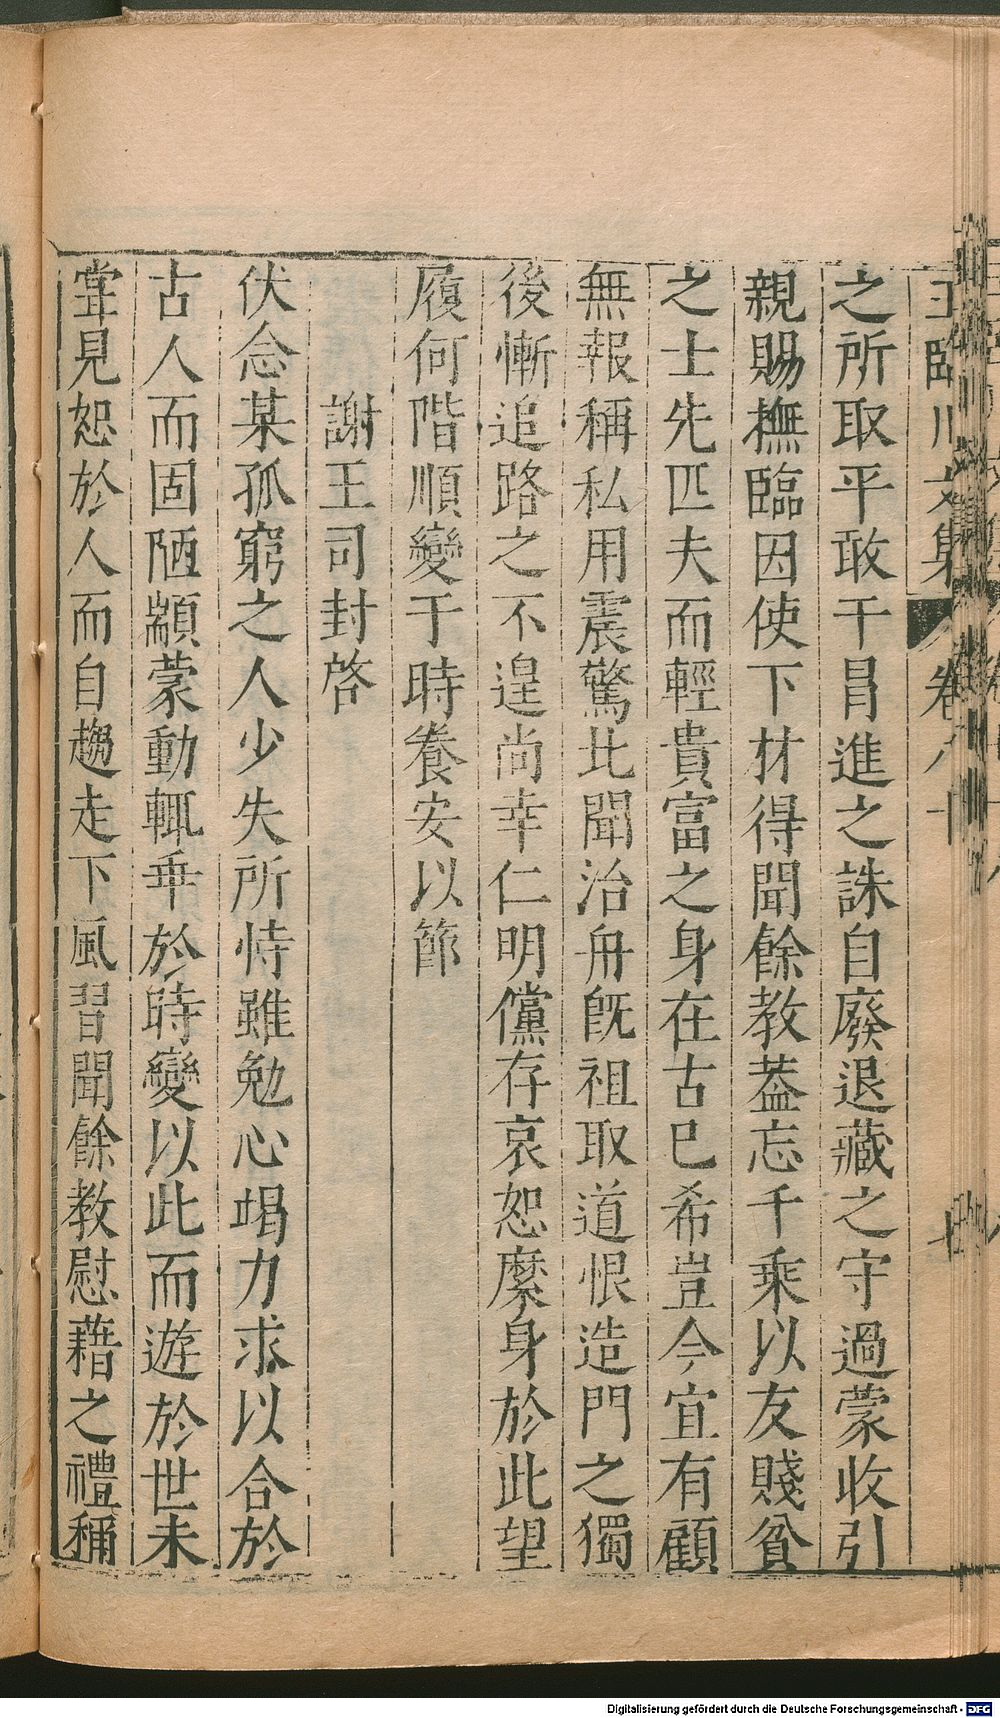 之所取平敢干冒進之誅自廢退藏之守過蒙收引
親賜撫臨因使下材得聞餘教葢忘千乘以友賤貧
之士先匹夫而輕貴富之身在古已希豈今宜有顧
無報稱私用震驚比聞治舟旣祖取道恨造門之獨
後慚追路之不遑尚幸仁明儻存哀恕縻身於此望
履何階順變于時養安以節
謝王司封啓
伏念某孤窮之人少失所恃雖勉心竭力求以合於
古人而固陋顓蒙動輒乖於時變以此而遊於世未
甞見恕於人而自趨走下風習聞餘教慰藉之禮稱
臨川文集
卷
Digitalisierung gefördert durch die Deutsche Forschungsgemeinschaft - DFG